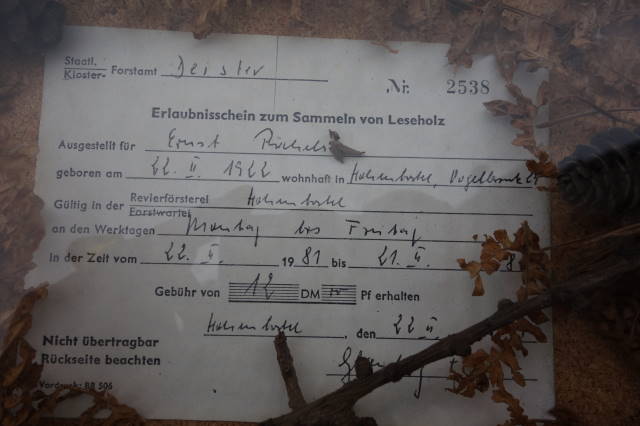 Staatl.
Kloster- Forstamt Deister
Nr. 2538
Erlaubnisschein zum Sammeln von Leseholz
Ausgestellt für Ernst
geboren am 22. II. 1922 wohnhaft in Hohenbostel,
Gültig in der Revierförsterei Hohenbostel
Forstwartei
an den Werktagen Montag bis Freitag
in der Zeit vom 22. II. 1981 bis 21. II. 8
Gebühr von 12 DM Pf erhalten
Hohenbostel, den 22 II
Nicht übertragbar
Rückseite beachten
Vordruck: BB 506